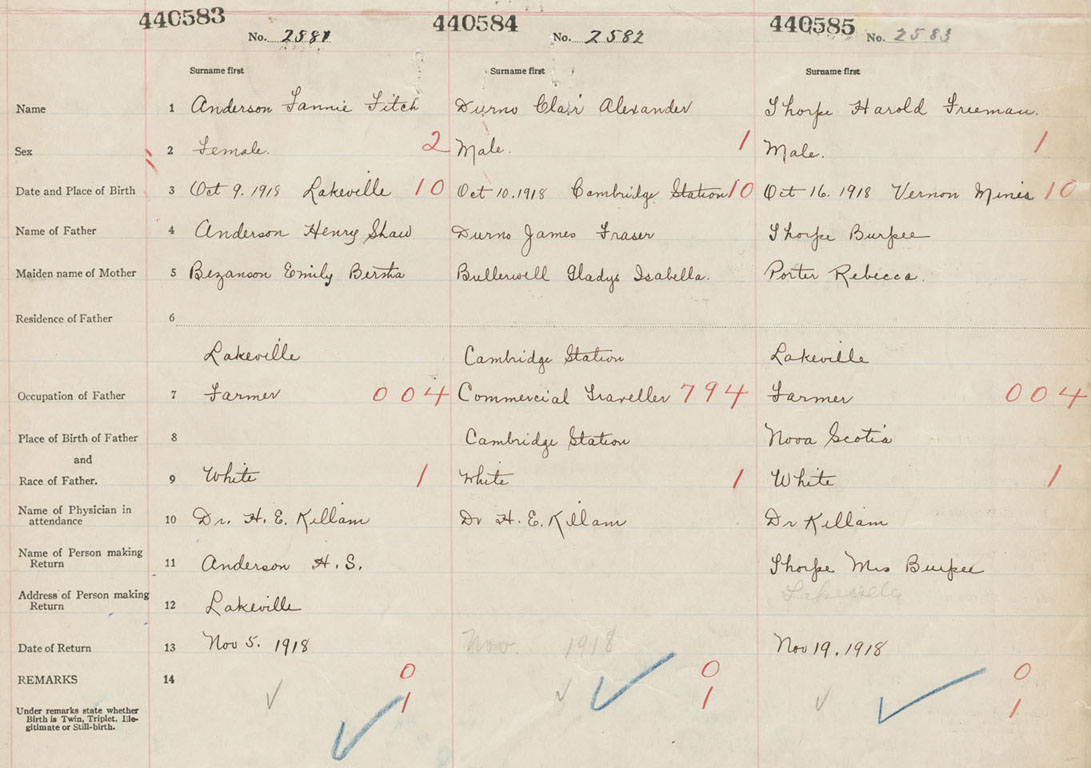 440583 440584 440585
No. 2581 No. 2582 No. 2583
Surname first Surname first Surname first
Name 1 Anderson Fannie Fitch Durno Clair Alexander Thorpe Harold Freeman.
Sex 2 Female. 2 Male. 1 Male. 1
Date and Place of Birth 3 Oct 9. 1918 Lakeville 10 Oct 10. 1918 Cambridge Station 10 Oct 16. 1918 Vernon Mines 10
Name of Father 4 Anderson Henry Shaw Durno James Fraser Thorpe Burpee
Maiden name of Mother 5 Bezanson Emily Bertha Bullerwell Gladys Isabella. Porter Rebecca.
Residence of Father 6
Lakeville Cambridge Station Lakeville
Occupation of Father 7 Farmer 004 Commercial Traveller 794 Farmer 004
Place of Birth of Father 8 Cambridge Station Nova Scotia
and
Race of Father. 9 White 1 White 1 White 1
Name of Physician in
attendance 10 Dr. H. E. Killam Dr H. E. Killam Dr Killam
Name of Person making
Return 11 Anderson H. S. Thorpe Mrs Burpee
Address of Person making
Return 12 Lakeville Lakeville
Date of Return 13 Nov 5. 1918 Nov. 1918 Nov 19. 1918
REMARKS 14 0 0 0
Under remarks state whether
Birth is Twin, Triplet. Ille-
gitimate or Still-birth. 1 1 1